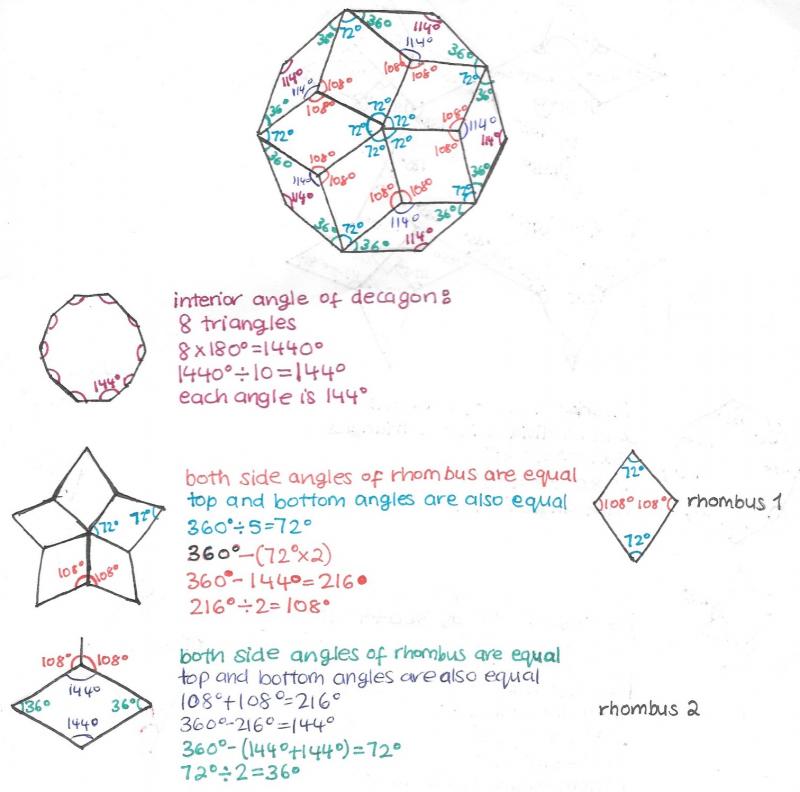 36° 36° 114°
72° 114° 36°
114° 108° 108° 72°
114° 108° 36°
36° 108° 72° 72° 108° 114° 114°
72° 72° 72° 72° 108°
36° 108° 36°
114° 108° 108° 108° 72°
114° 36° 72° 114° 36°
36° 114°
interior angle of decagon:
8 triangles
8×180°=1440°
1440°÷10=144°
each angle is 144°
144°
both side angles of rhombus are equal
top and bottom angles are also equal
360°÷5=72°
360°-(72°×2)
360°-144°=216°
216°÷2=108°
72° 72°
108° 108°
72°
108° 108°
72°
rhombus 1
108° 108°
144°
36° 36°
144°
both side angles of rhombus are equal
top and bottom angles are also equal
108°+108°=216°
360°-216°=144°
360°-(144°+144°)=72°
72°÷2=36°
rhombus 2